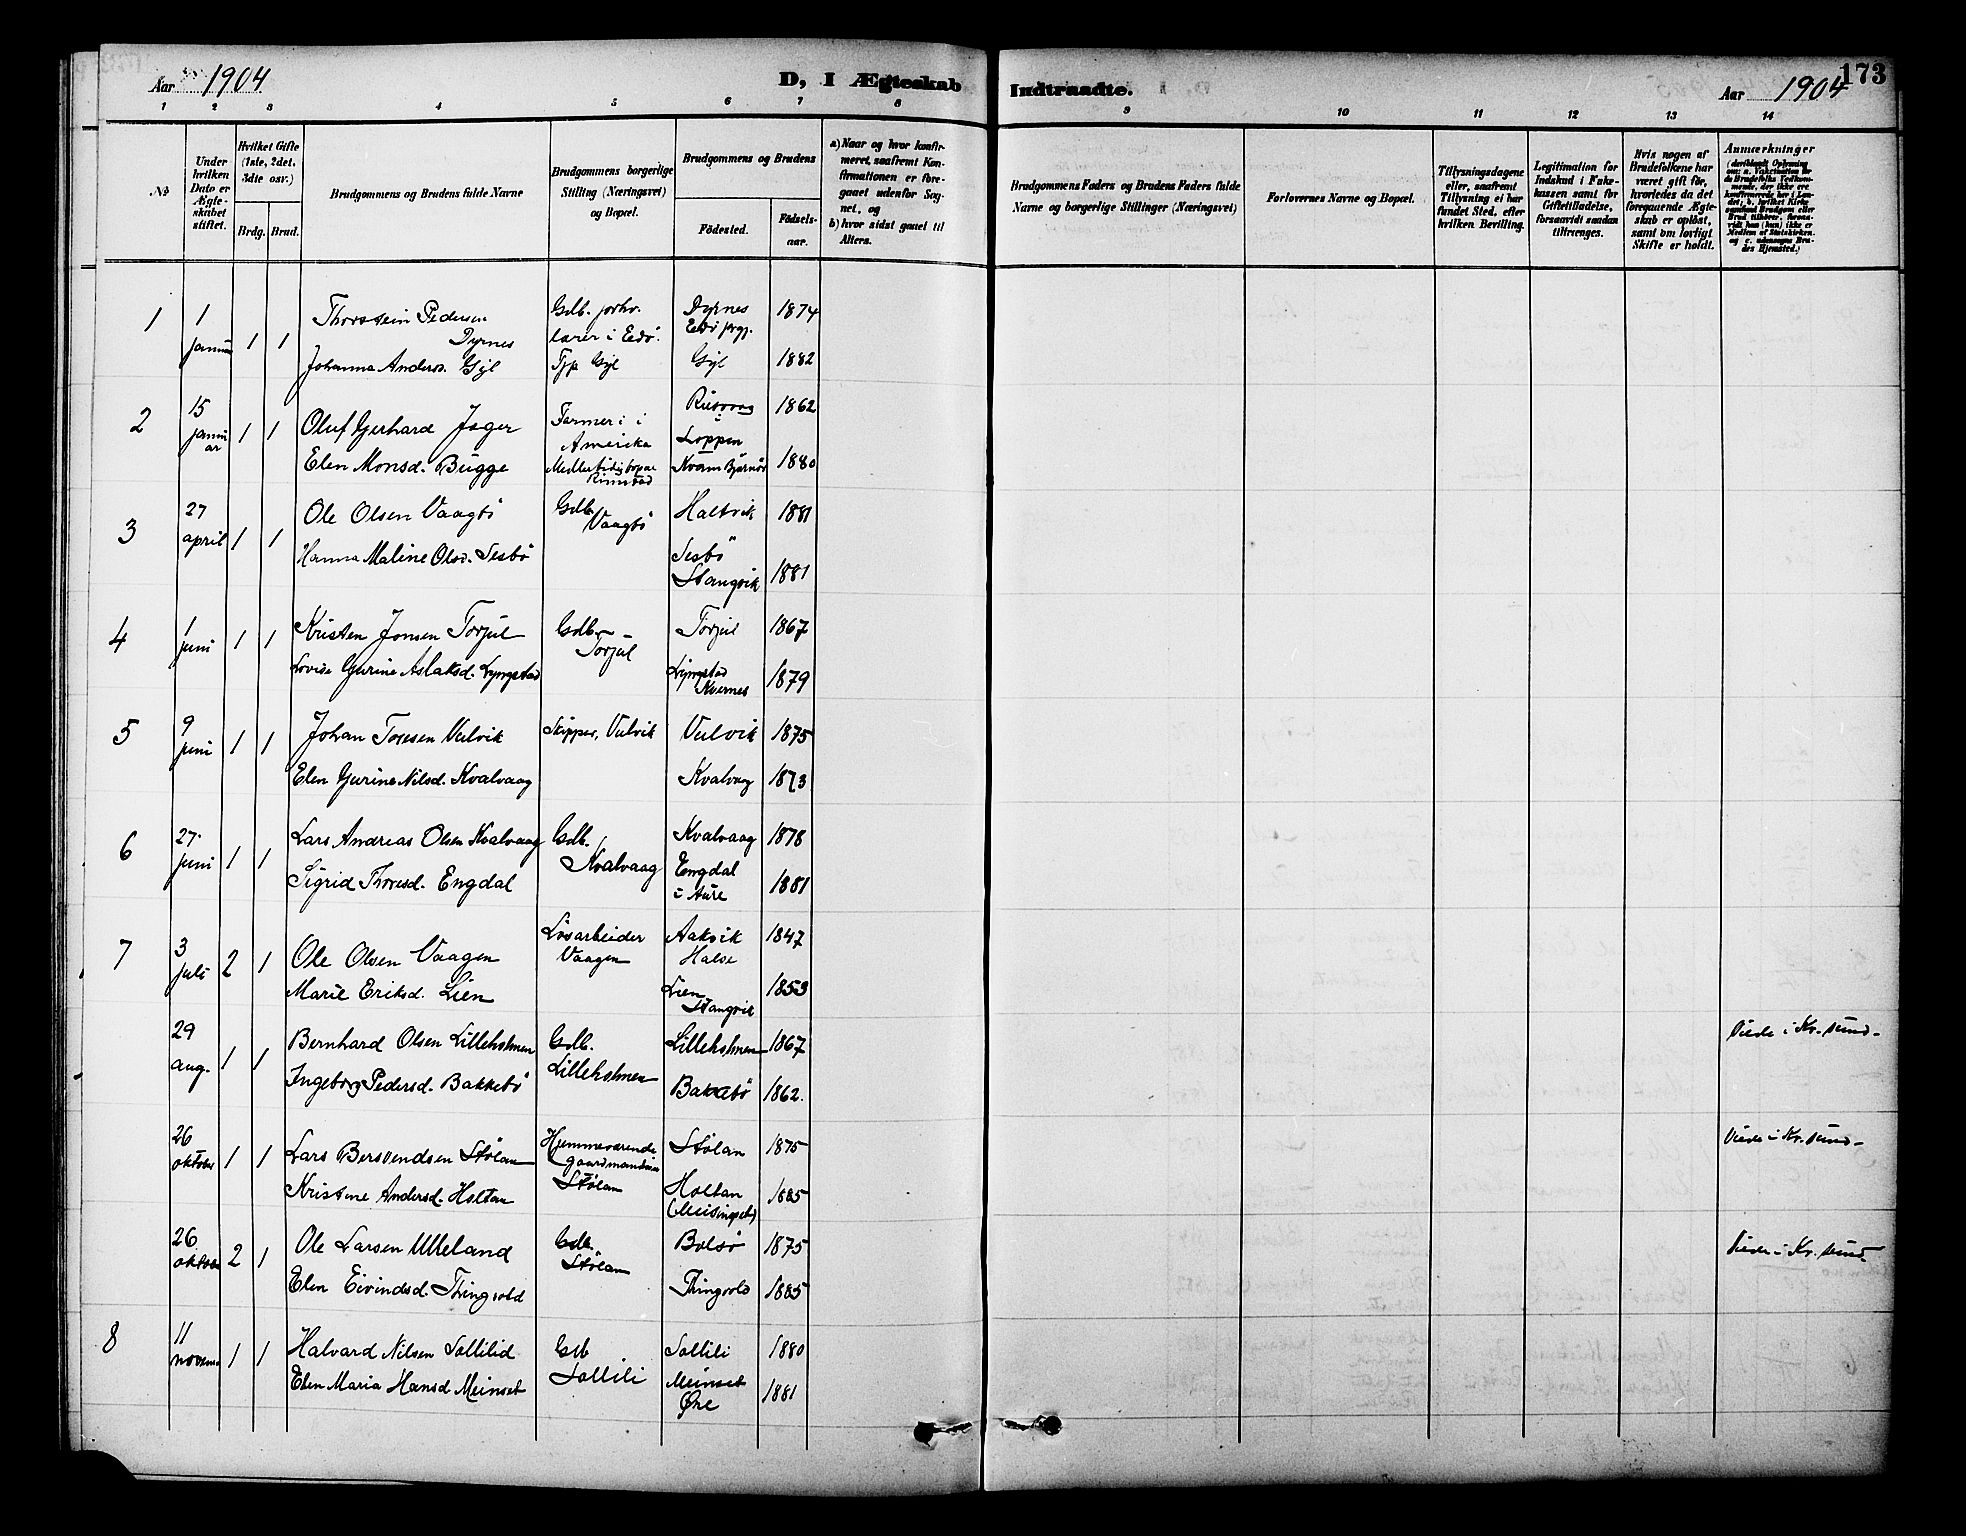 Aar 1904
D, I Ægteskab Indtraadte.
Aar 1904
173
1 2 3 4 5 6 7 8 9 10 11 12 13 14
No
Under hvilken Dato er Ægteskabet stiftet.
Hvilket Gifte (1ste, 2det, 3die osv.)
Brdg. Brud.
Brudgommens og Brudens fulde Navne
Brudgommens borgerlige Stilling (Næringsvei) og Bopæl.
Brudgommens og Brudens
Fødested.
Fødselsaar.
a) Naar og hvor konfirmeret, saafremt Konfirmationen er foregaaet udenfor Sognet, og
b) hvor sidst gaaet til Alters.
Brudgommens Faders og Brudens Faders fulde Navne og borgerlige Stillinger (Næringsvei)
Forlovernes Navne og Bopæl.
Tillysningsdagene eller, saafremt Tillysning ei har fundet Sted, efter hvilken Bevilling.
Legitimation for Indskud i Enkekassen samt for Giftetilladelse, forsaavidt saadan tiltrænges.
Hvis nogen af Brudefolkene har været gift før, hvorledes da det foregaaende Ægteskab er opløst, samt om lovligt Skifte er holdt.
Anmærkninger
1 1 januar 1 1 Thorstein Pedersen Dyrnes Gdb. forhv. lærer i Edø. Dyrnes Edø prgj. 1874
Johanna Anders. Gyl Gyl Gyl 1882
2 15 januar 1 1 Oluf Gerhard Jager Farmer i Amerika Loppen 1862
Elen Monsd. Bugge Rimstad Kvam Bjørnør 1880
3 27 april 1 1 Ole Olsen Vaagbø Gdb. Vaagbø Haltvik 1881
Hanna Maline Olsd. Sesbø Sesbø Stangvik 1881
4 1 juni 1 1 Kristen Jonsen Torjul Gdb. Torjul Torjul 1867
Lovise Gurine Aslaksd. Lyngstad Lyngstad Kvernes 1879
5 9 juni 1 1 Johan Toresen Vulvik Skipper, Vulvik Vulvik 1875
Elen Gurine Nilsd. Kvalvaag Kvalvaag 1873
6 27 juni 1 1 Lars Andreas Olsen Kvalvaag Gdb. Kvalvaag Kvalvaag 1878
Sigrid Thoresd. Engdal Engdal i Aure 1881
7 3 juli 2 1 Ole Olsen Vaagen Løsarbeider Vaagen Aakvik Halse 1847
Marie Eriksd. Lien Lien Stangvik 1853
29 aug. 1 1 Bernhard Olsen Lilleholmen Gdb. Lilleholmen Lilleholmen 1867 Viede i Kr.sund
Ingeborg Pedersd. Bakkebø Bakkebø 1862.
26 oktober 1 1 Lars Bersvendsen Stølan Hjemmeværende gaardmandssøn Stølan Stølan 1875 Viede i Kr.sund
Kristine Andersd. Holtan Holtan (Meisingset) 1885
26 oktober 2 1 Ole Larsen Ulleland Gdb. Stølan Bolsø 1875 Viede i Kr.sund
Elen Eivindsd. Thingvold Thingvold 1885
8 11 november 1 1 Halvard Nilsen Sollilid Gdb Sollili Sollili 1880
Elen Maria Hansd Meinset Meinset Øre 1881